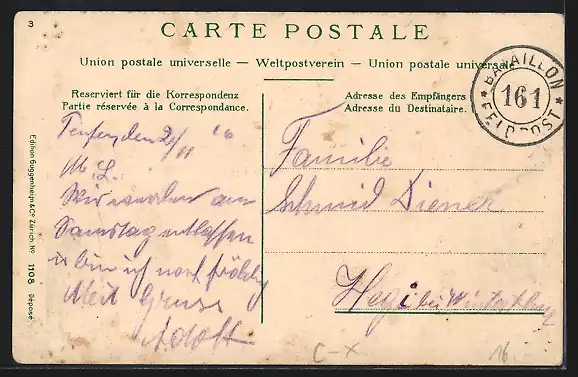 3
CARTE POSTALE
Union postale universelle — Weltpostverein — Union postale universale
BATAILLON
161
FELDPOST
Reserviert für die Korrespondenz
Partie réservée à la Correspondance.
Adresse des Empfängers
Adresse du Destinataire.
Edition Guggenheim & Co Zürich No 1108 Déposé
den 2/11
M. L.
Wir werden am
Samstag entlassen
u bin ich noch fröhlich
Mit Gruss
Adolf
Familie
Schmid Diener
Hegi bei Winterthur
C-X
16